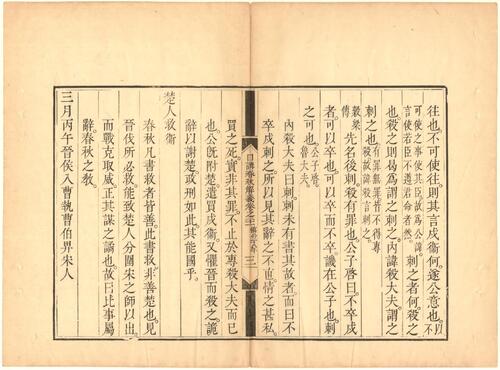 往也不可使往則其言戍衞何遂公意也以不
可使之事使其臣故爲公諱
言使若臣不違君命者然
刺之者何殺之
也殺之則曷爲謂之刺之內諱殺大夫謂之
刺之也
有罪無罪皆不得專
殺故諱殺言刺之
穀梁傳
先名後刺殺有罪也公子啓曰不卒戍
者可以卒也可以卒而不卒譏在公子也刺
之可也
內殺大夫曰刺刺未有書其故者而曰不
卒戍刺之所以見其辭之不直情之甚私
日講春秋解義卷之二十
三
買之死實非其罪不止於專殺大夫而已
也公旣附楚遣買戍衞又懼晉而殺之詭
辭以謝楚政刑如此其能國乎
楚人救衞
春秋凡書救者皆善此書救非善楚也見
晉伐所必救能致楚人分圍宋之師以出
而戰克取威正其謀之譎也故曰比事屬
辭春秋之敎
三月丙午晉侯入曹執曹伯畀宋人